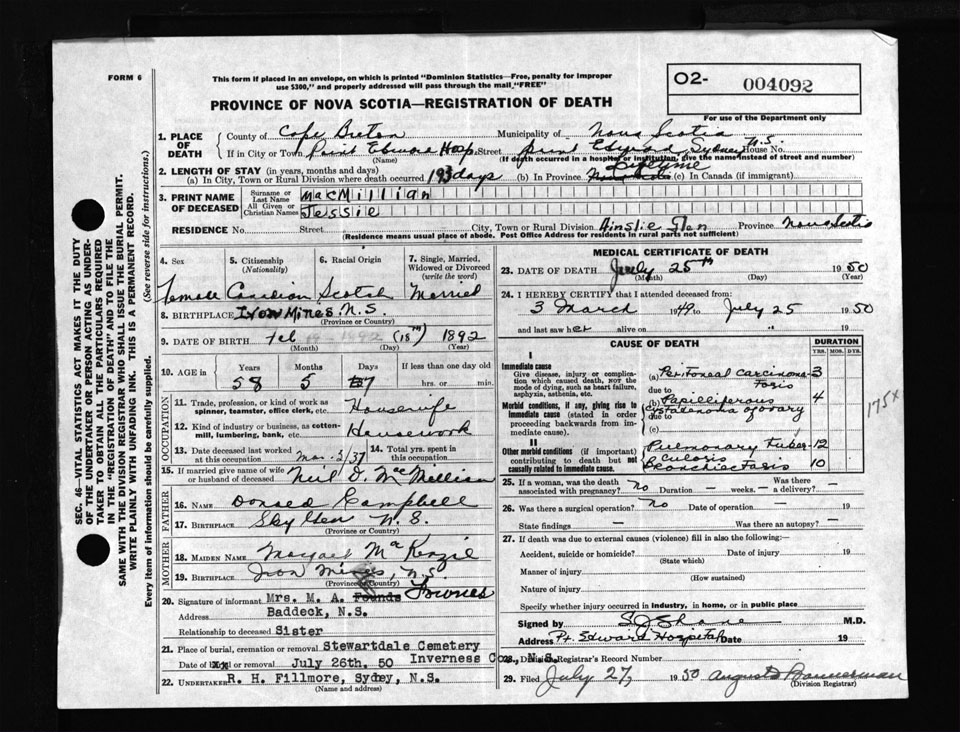 FORM 6
This form if placed in an envelope, on which is printed "Dominion Statistics—Free, penalty for improper
use $300," and properly addressed will pass through the mail, "FREE"
PROVINCE OF NOVA SCOTIA—REGISTRATION OF DEATH
O2- 004092
For use of the Department only
1. PLACE OF DEATH
County of Cape Breton Municipality of Nova Scotia
If in City or Town Point Edward Hosp. Street Point Edward, Sydney House No. N.S.
(Name) (If death occurred in a hospital or institution, give the name instead of street and number)
2. LENGTH OF STAY (in years, months and days)
(a) In City, Town or Rural Division where death occurred days (b) In Province Nova Scotia Lifetime (c) In Canada (if immigrant)
3. PRINT NAME OF DECEASED
Surname or Last Name MacMillian
All Given or Christian Names Jessie
RESIDENCE No. Street City, Town or Rural Division Ainslie Glen Province Nova Scotia
(Residence means usual place of abode. Post Office Address for residents in rural parts not sufficient)
4. Sex 5. Citizenship (Nationality) 6. Racial Origin 7. Single, Married, Widowed or Divorced (write the word)
Female Canadian Scotch Married
8. BIRTHPLACE Iron Mines N.S.
(Province or Country)
9. DATE OF BIRTH Feb (18th) 1892
(Month) (Day) (Year)
10. AGE in Years Months Days If less than one day old
58 5 7 hrs. or min.
OCCUPATION
11. Trade, profession, or kind of work as spinner, teamster, office clerk, etc. Housewife
12. Kind of industry or business, as cotton-mill, lumbering, bank, etc. Housework
13. Date deceased last worked at this occupation Mar. 3/37 14. Total yrs. spent in this occupation
15. If married give name of wife or husband of deceased Neil D. McMillian
FATHER
16. Name Donald Campbell
17. Birthplace Skye Glen N.S.
(Province or Country)
MOTHER
18. Maiden Name Margaet McKenzie
19. Birthplace Iron Mines, N.S.
(Province or Country)
20. Signature of informant Mrs. M. A. Founds Townes
Address Baddeck, N.S.
Relationship to deceased Sister
21. Place of burial, cremation or removal Stewartdale Cemetery
Date of burial or removal July 26th, 50 Inverness Co., N.S.
22. UNDERTAKER R. H. Fillmore, Sydey, N.S.
(Name and address)
MEDICAL CERTIFICATE OF DEATH
23. DATE OF DEATH July 25th 1950
(Month) (Day) (Year)
24. I HEREBY CERTIFY that I attended deceased from:
3 March 1949 to July 25 1950
and last saw her alive on " 19
CAUSE OF DEATH DURATION
YRS. MOS. DYS.
I
Immediate cause
Give disease, injury or complication which caused death, NOT the mode of dying, such as heart failure, asphyxia, asthenia, etc.
(a) Peritoneal Carcinomatosis 3
due to
Morbid conditions, if any, giving rise to immediate cause (stated in order proceeding backwards from immediate cause).
(b) Papilliferous 4
Cystadenoma of ovary
due to
(c)
175x
II
Other morbid conditions (if important) contributing to death but not causally related to immediate cause.
Pulmonary Tuberculosis 12
Bronchiectasis 10
25. If a woman, was the death associated with pregnancy? No Duration — weeks. — Was there a delivery? —
26. Was there a surgical operation? No Date of operation — 19
State findings — Was there an autopsy? —
27. If death was due to external causes (violence) fill in also the following:—
Accident, suicide or homicide? Date of injury 19
(State which)
Manner of injury
(How sustained)
Nature of injury
Specify whether injury occurred in industry, in home, or in public place
Signed by S J Shane M.D.
Address Pt. Edward Hospital Date 19
28. Division Registrar's Record Number
29. Filed July 27, 1950 Bannerman
(Division Registrar)
SEC. 46—VITAL STATISTICS ACT MAKES IT THE DUTY
OF THE UNDERTAKER OR PERSON ACTING AS UNDER-
TAKER TO OBTAIN ALL THE PARTICULARS REQUIRED
IN THE "REGISTRATION OF DEATH" AND TO FILE THE
SAME WITH THE DIVISION REGISTRAR WHO SHALL ISSUE THE BURIAL PERMIT.
WRITE PLAINLY WITH UNFADING INK. THIS IS A PERMANENT RECORD.
Every item of information should be carefully supplied. (See reverse side for instructions.)